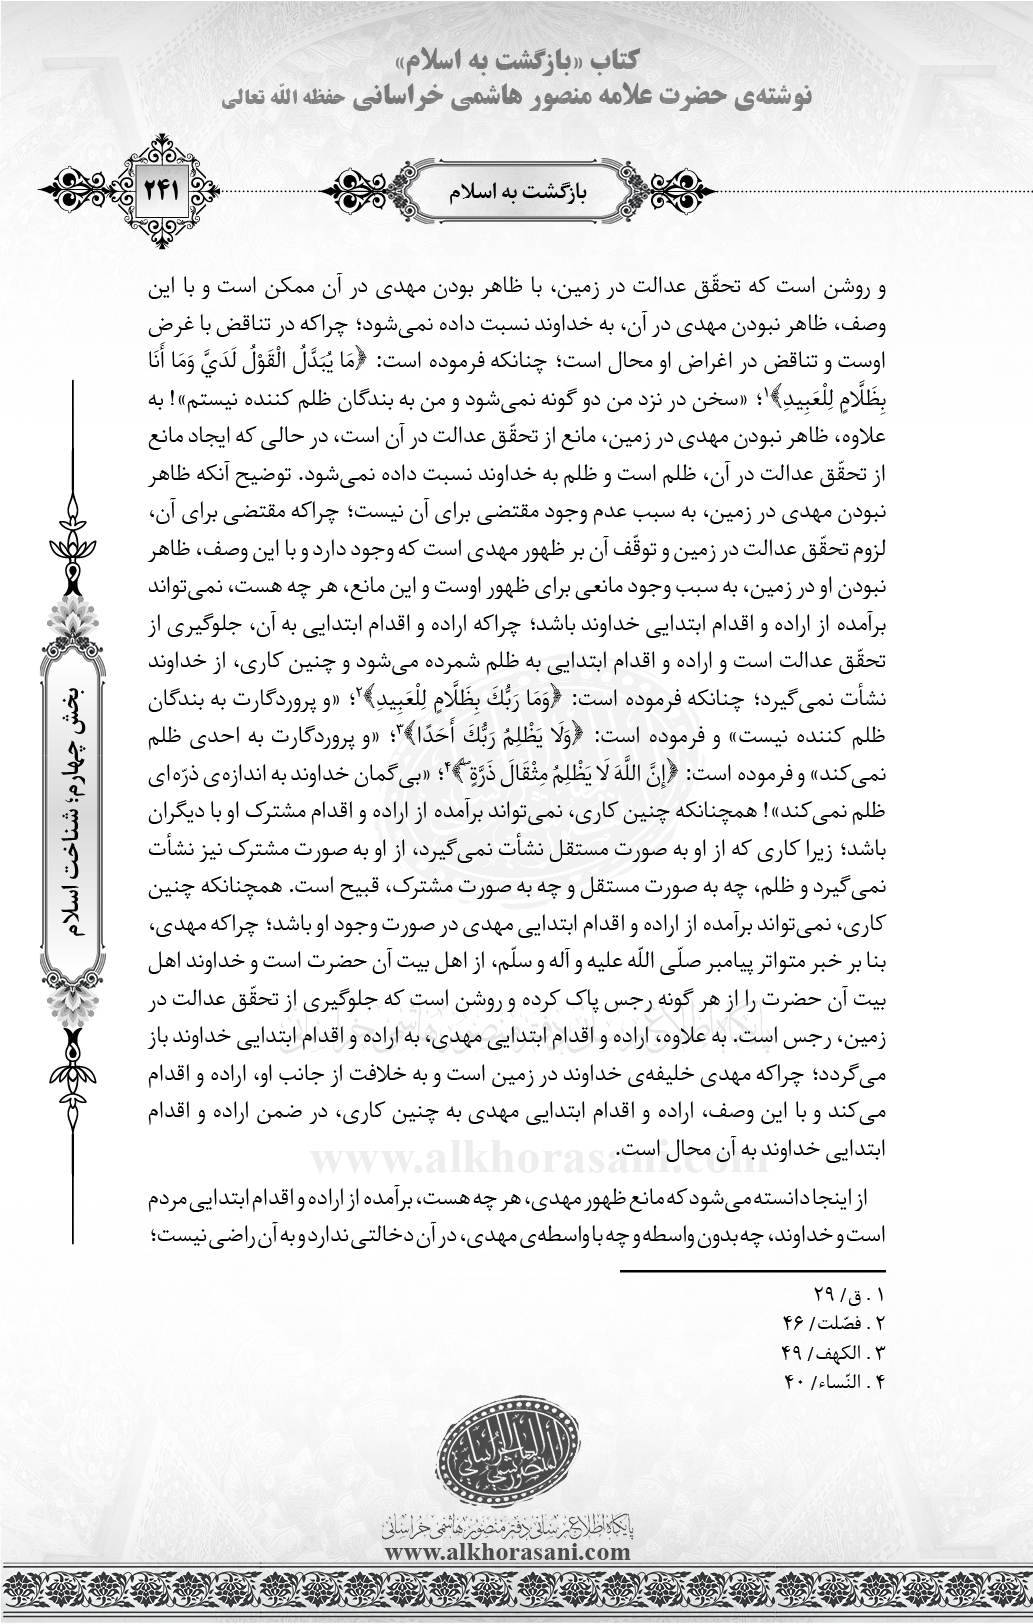 کتاب «بازگشت به اسلام»
نوشته‌ی حضرت علامه منصور هاشمی خراسانی حفظه الله تعالی
بازگشت به اسلام
۲۴۱
و روشن است که تحقّق عدالت در زمین، با ظاهر بودن مهدی در آن ممکن است و با این
وصف، ظاهر نبودن مهدی در آن، به خداوند نسبت داده نمی‌شود؛ چراکه در تناقض با غرض
اوست و تناقض در اغراض او محال است؛ چنانکه فرموده است: ﴿مَا يُبَدَّلُ الْقَوْلُ لَدَيَّ وَمَا أَنَا
بِظَلَّامٍ لِلْعَبِيدِ﴾۱؛ «سخن در نزد من دو گونه نمی‌شود و من به بندگان ظلم کننده نیستم»! به
علاوه، ظاهر نبودن مهدی در زمین، مانع از تحقّق عدالت در آن است، در حالی که ایجاد مانع
از تحقّق عدالت در آن، ظلم است و ظلم به خداوند نسبت داده نمی‌شود. توضیح آنکه ظاهر
نبودن مهدی در زمین، به سبب عدم وجود مقتضی برای آن نیست؛ چراکه مقتضی برای آن،
لزوم تحقّق عدالت در زمین و توقّف آن بر ظهور مهدی است که وجود دارد و با این وصف، ظاهر
نبودن او در زمین، به سبب وجود مانعی برای ظهور اوست و این مانع، هر چه هست، نمی‌تواند
برآمده از اراده و اقدام ابتدایی خداوند باشد؛ چراکه اراده و اقدام ابتدایی به آن، جلوگیری از
تحقّق عدالت است و اراده و اقدام ابتدایی به ظلم شمرده می‌شود و چنین کاری، از خداوند
نشأت نمی‌گیرد؛ چنانکه فرموده است: ﴿وَمَا رَبُّكَ بِظَلَّامٍ لِلْعَبِيدِ﴾۲؛ «و پروردگارت به بندگان
ظلم کننده نیست» و فرموده است: ﴿وَلَا يَظْلِمُ رَبُّكَ أَحَدًا﴾۳؛ «و پروردگارت به احدی ظلم
نمی‌کند» و فرموده است: ﴿إِنَّ اللَّهَ لَا يَظْلِمُ مِثْقَالَ ذَرَّةٍ ۖ﴾۴؛ «بی‌گمان خداوند به اندازه‌ی ذرّه‌ای
ظلم نمی‌کند»! همچنانکه چنین کاری، نمی‌تواند برآمده از اراده و اقدام مشترک او با دیگران
باشد؛ زیرا کاری که از او به صورت مستقل نشأت نمی‌گیرد، از او به صورت مشترک نیز نشأت
نمی‌گیرد و ظلم، چه به صورت مستقل و چه به صورت مشترک، قبیح است. همچنانکه چنین
کاری، نمی‌تواند برآمده از اراده و اقدام ابتدایی مهدی در صورت وجود او باشد؛ چراکه مهدی،
بنا بر خبر متواتر پیامبر صلّی اللّه علیه و آله و سلّم، از اهل بیت آن حضرت است و خداوند اهل
بیت آن حضرت را از هر گونه رجس پاک کرده و روشن است که جلوگیری از تحقّق عدالت در
زمین، رجس است. به علاوه، اراده و اقدام ابتدایی مهدی، به اراده و اقدام ابتدایی خداوند باز
می‌گردد؛ چراکه مهدی خلیفه‌ی خداوند در زمین است و به خلافت از جانب او، اراده و اقدام
می‌کند و با این وصف، اراده و اقدام ابتدایی مهدی به چنین کاری، در ضمن اراده و اقدام
ابتدایی خداوند به آن محال است.
از اینجا دانسته می‌شود که مانع ظهور مهدی، هر چه هست، برآمده از اراده و اقدام ابتدایی مردم
است و خداوند، چه بدون واسطه و چه با واسطه‌ی مهدی، در آن دخالتی ندارد و به آن راضی نیست؛
۱ . ق/ ۲۹
۲ . فصّلت/ ۴۶
۳ . الکهف/ ۴۹
۴ . النّساء/ ۴۰
بخش چهارم؛ شناخت اسلام
پایگاه اطلاع رسانی دفتر منصور هاشمی خراسانی
www.alkhorasani.com
پایگاه اطلاع رسانی دفتر منصور هاشمی خراسانی
www.alkhorasani.com